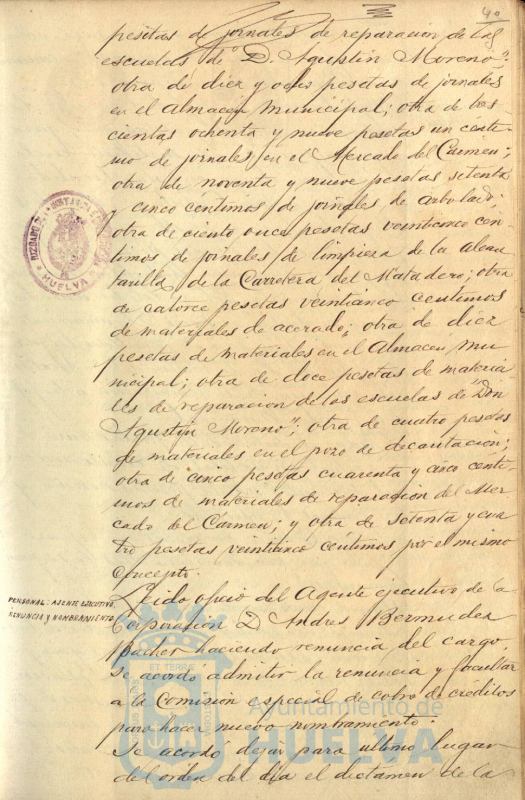 40
pesetas de jornales de reparación de las
escuelas de "D. Agustin Moreno";
otra de diez y ocho pesetas de jornales
en el Almacén Municipal; otra de dos
cientas ochenta y nueve pesetas un cénti-
mo de jornales en el Mercado del Carmen;
otra de noventa y nueve pesetas setenta
y cinco centimos de jornales de arbolado;
otra de ciento once pesetas veinticinco cen-
timos de jornales de limpieza de la alcan-
tarilla de la Carretera del Matadero; otra
de catorce pesetas veinticinco centimos
de materiales de acerado; otra de diez
pesetas de materiales en el Almacen Mu-
nicipal; otra de doce pesetas de materia-
les de reparación de las escuelas de "Don
Agustin Moreno"; otra de cuatro pesetas
de materiales en el pozo de decantación;
otra de cinco pesetas cuarenta y cinco centi-
mos de materiales de reparación del Mer-
cado del Cármen; y otra de setenta y cua-
tro pesetas veinticinco céntimos por el mismo
concepto.
PERSONAL: AGENTE EJECUTIVO,
RENUNCIA Y NOMBRAMIENTO
Leido oficio del Agente ejecutivo de la
Corporación D. Andres Bermudez
haciendo renuncia del cargo,
se acordó admitir la renuncia y facultar
a la Comisión especial de cobro de créditos
para hacer nuevo nombramiento.
Se acordó dejar para ultimo lugar
del orden del dia el dictamen de la
HUELVA
Ayuntamiento de
HUELVA